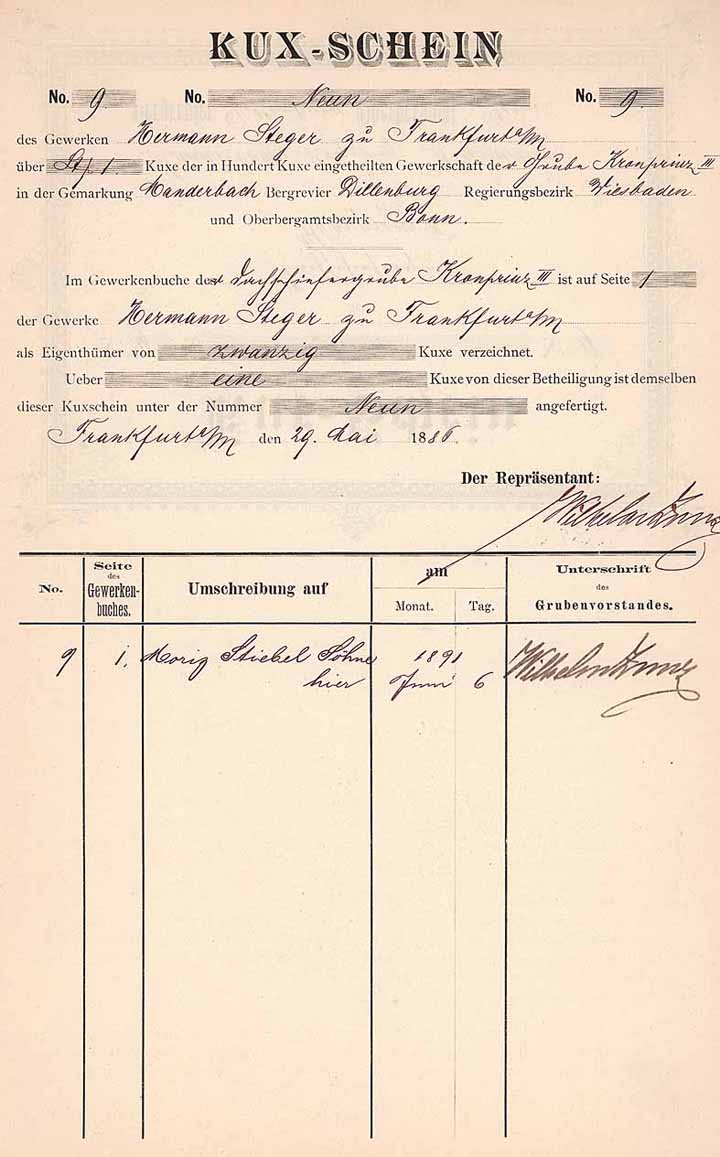 KUX-SCHEIN
No. 9. No. Neun No. 9.
des Gewerken Hermann Steger zu Frankfurt a/M
über St. 1. Kuxe der in Hundert Kuxe eingetheilten Gewerkschaft der Grube Kronprinz III
in der Gemarkung Manderbach Bergrevier Dillenburg Regierungsbezirk Wiesbaden
und Oberbergamtsbezirk Bonn.
Im Gewerkenbuche der Dachschiefergrube Kronprinz III ist auf Seite 1
der Gewerke Hermann Steger zu Frankfurt a/M
als Eigenthümer von zwanzig Kuxe verzeichnet.
Ueber eine Kuxe von dieser Betheiligung ist demselben
dieser Kuxschein unter der Nummer Neun angefertigt.
Frankfurt a/M den 29. Mai 1886.
Der Repräsentant:
No. Seite des Gewerken-buches. Umschreibung auf am Monat. Tag. Unterschrift des Grubenvorstandes.
9 1. Moriz Stiebel Söhne 1891
hier Juni 6